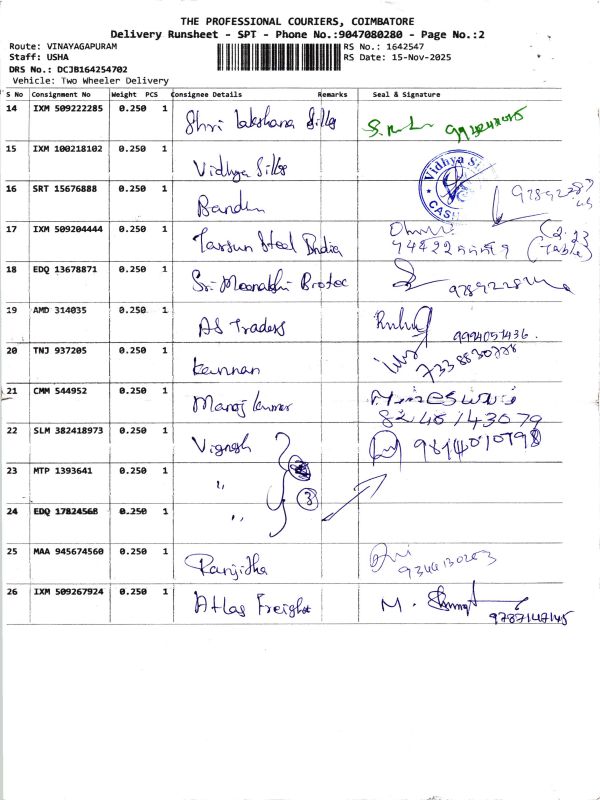 THE PROFESSIONAL COURIERS, COIMBATORE
Delivery Runsheet - SPT - Phone No.:9047080280 - Page No.:2
Route: VINAYAGAPURAM RS No.: 1642547
Staff: USHA RS Date: 15-Nov-2025
DRS No.: DCJB164254702
Vehicle: Two Wheeler Delivery
S No Consignment No Weight PCS Consignee Details Remarks Seal & Signature
14 IXM 509222285 0.250 1 Shri Lakshana Silks
15 IXM 100218102 0.250 1 Vidhya Silks
16 SRT 15676888 0.250 1
17 IXM 509204444 0.250 1 Steel India
(Table)
18 EDQ 13678871 0.250 1 Sri Meenakshi
19 AMD 314035 0.250 1 AS Traders 9994051436.
20 TNJ 937205 0.250 1 Kannan 7338830728
21 CMM 544952 0.250 1 Manoj kumar
8240143079
22 SLM 382418973 0.250 1 Vignesh
23 MTP 1393641 0.250 1 "
3
24 EDQ 17824568 0.250 1 "
25 MAA 945674560 0.250 1 Ranjitha
26 IXM 509267924 0.250 1 Atlas Freight M.
9787147145